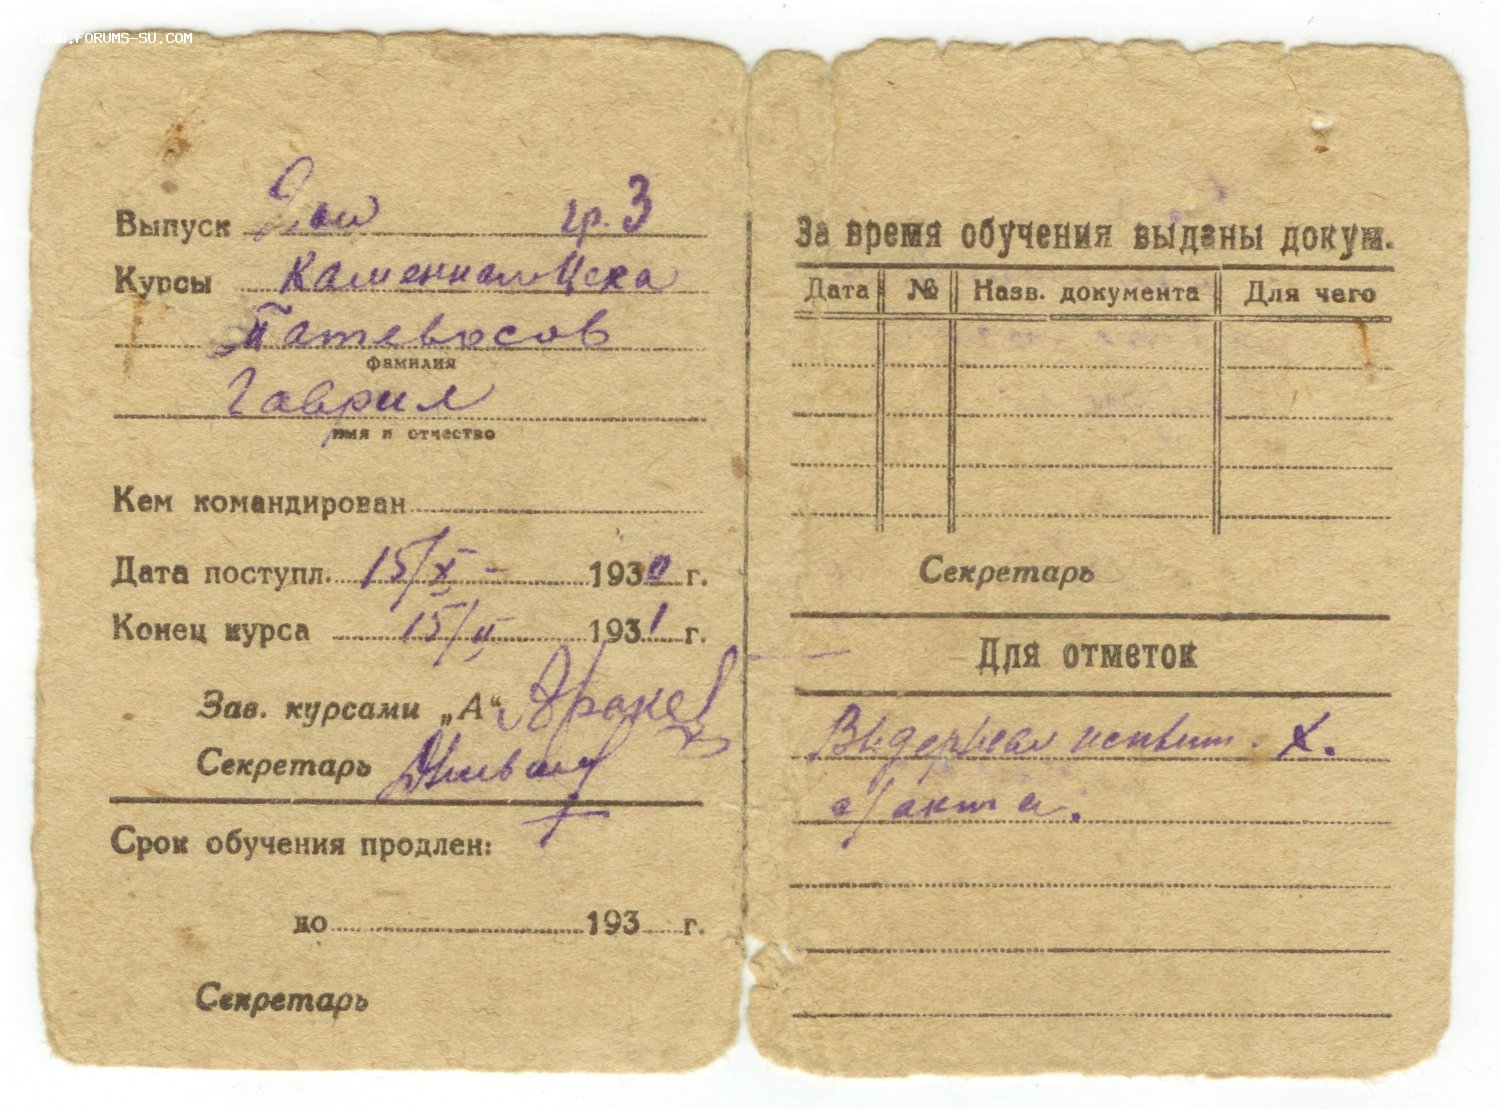 WWW.FORUMS-SU.COM
Выпуск гр. 3
Курсы
Татевосов
фамилия
Гаврил
имя и отчество
Кем командирован
Дата поступл. 15/X - 1930 г.
Конец курса 15/II 1931 г.
Зав. курсами „А“
Секретарь
Срок обучения продлен:
до 193 г.
Секретарь
За время обучения выданы докум.
Дата № Назв. документа Для чего
Секретарь
Для отметок
Выдержал испыт. х.